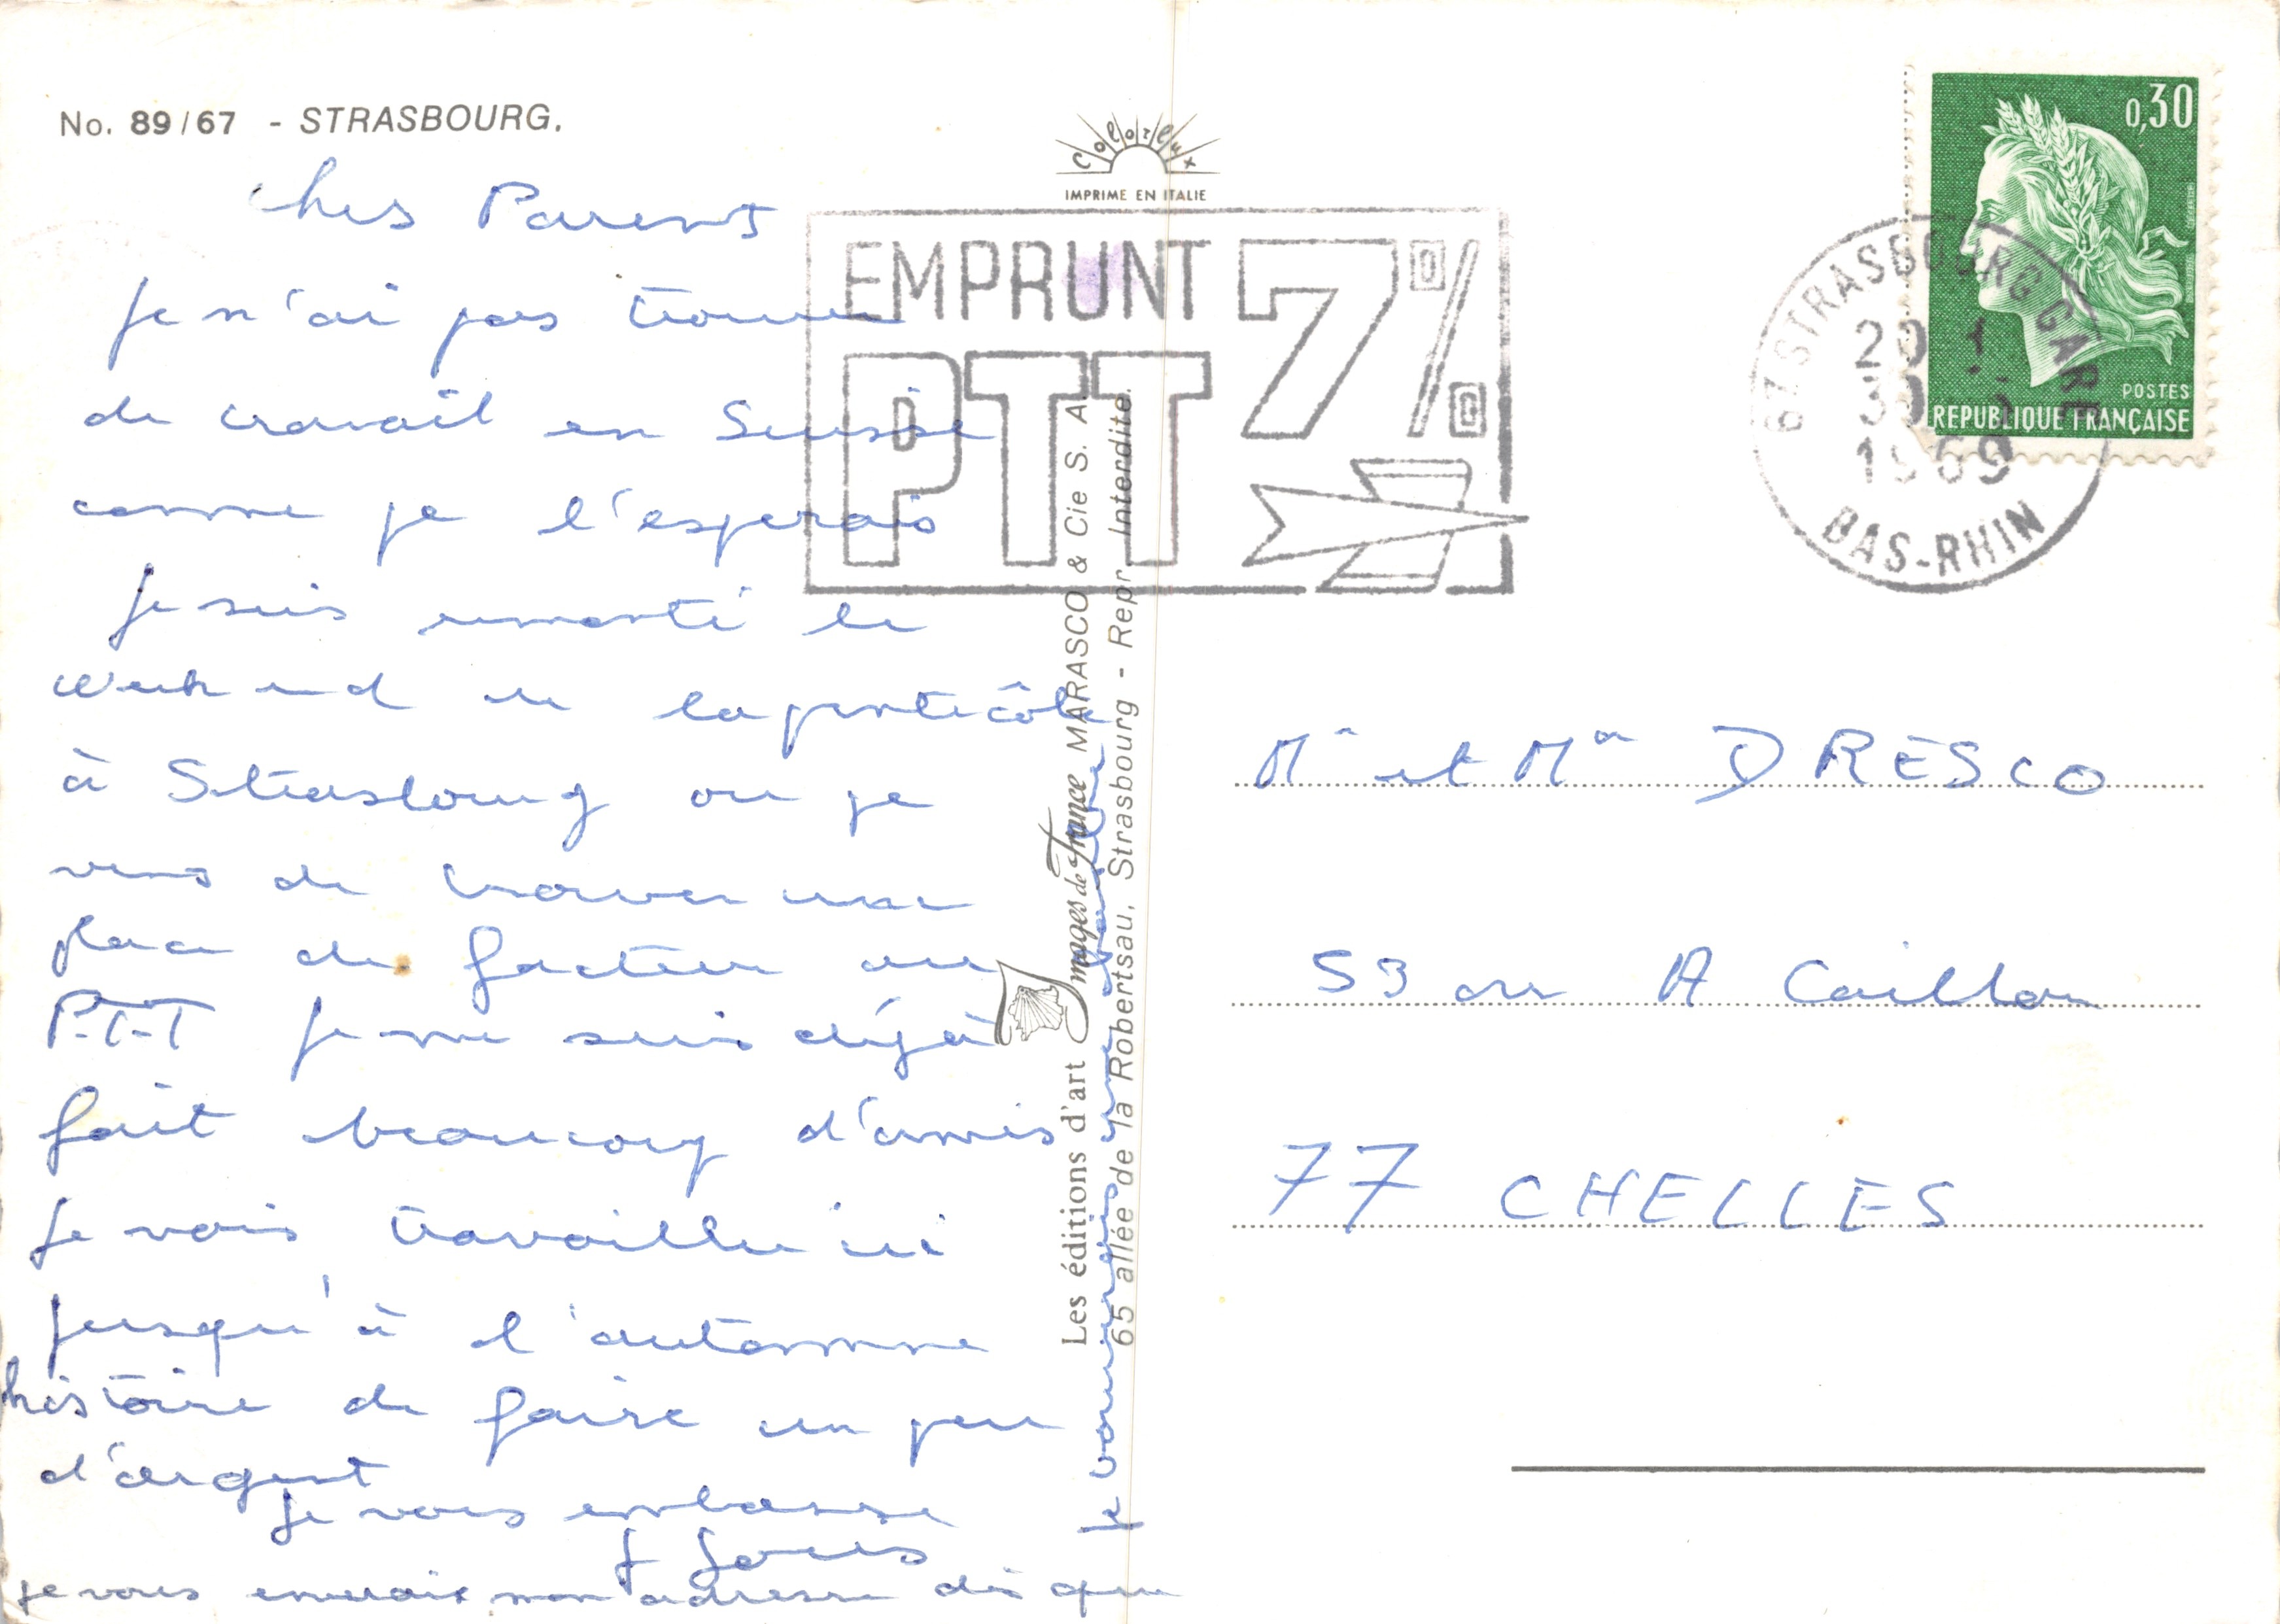 No. 89/67 - STRASBOURG.
Colorlux
IMPRIME EN ITALIE
0,30
POSTES
REPUBLIQUE FRANÇAISE
EMPRUNT 7%
PTT
67 STRASBOURG GARE
20
30
1969
BAS-RHIN
Chers Parents
Je n'ai pas trouver
de travail en Suisse
comme je l'esperais
Je suis remonté le
week end de la pentecôte
à Strasbourg ou je
viens de trouver une
place de facteur au
P.T.T Je me suis déjà
fait beaucoup d'amis
Je vais travailler ici
jusqu'à l'automne
histoire de faire un peu
d'argent
Je vous embrasse
Louis
je vous enverais mon adresse dès que
je pourrais
Les éditions d'art Images de France MARASCO & Cie S. A.
65 allée de la Robertsau, Strasbourg - Repr. Interdite.
Mr et Mm DRESCO
53 av A Caillou
77 CHELLES